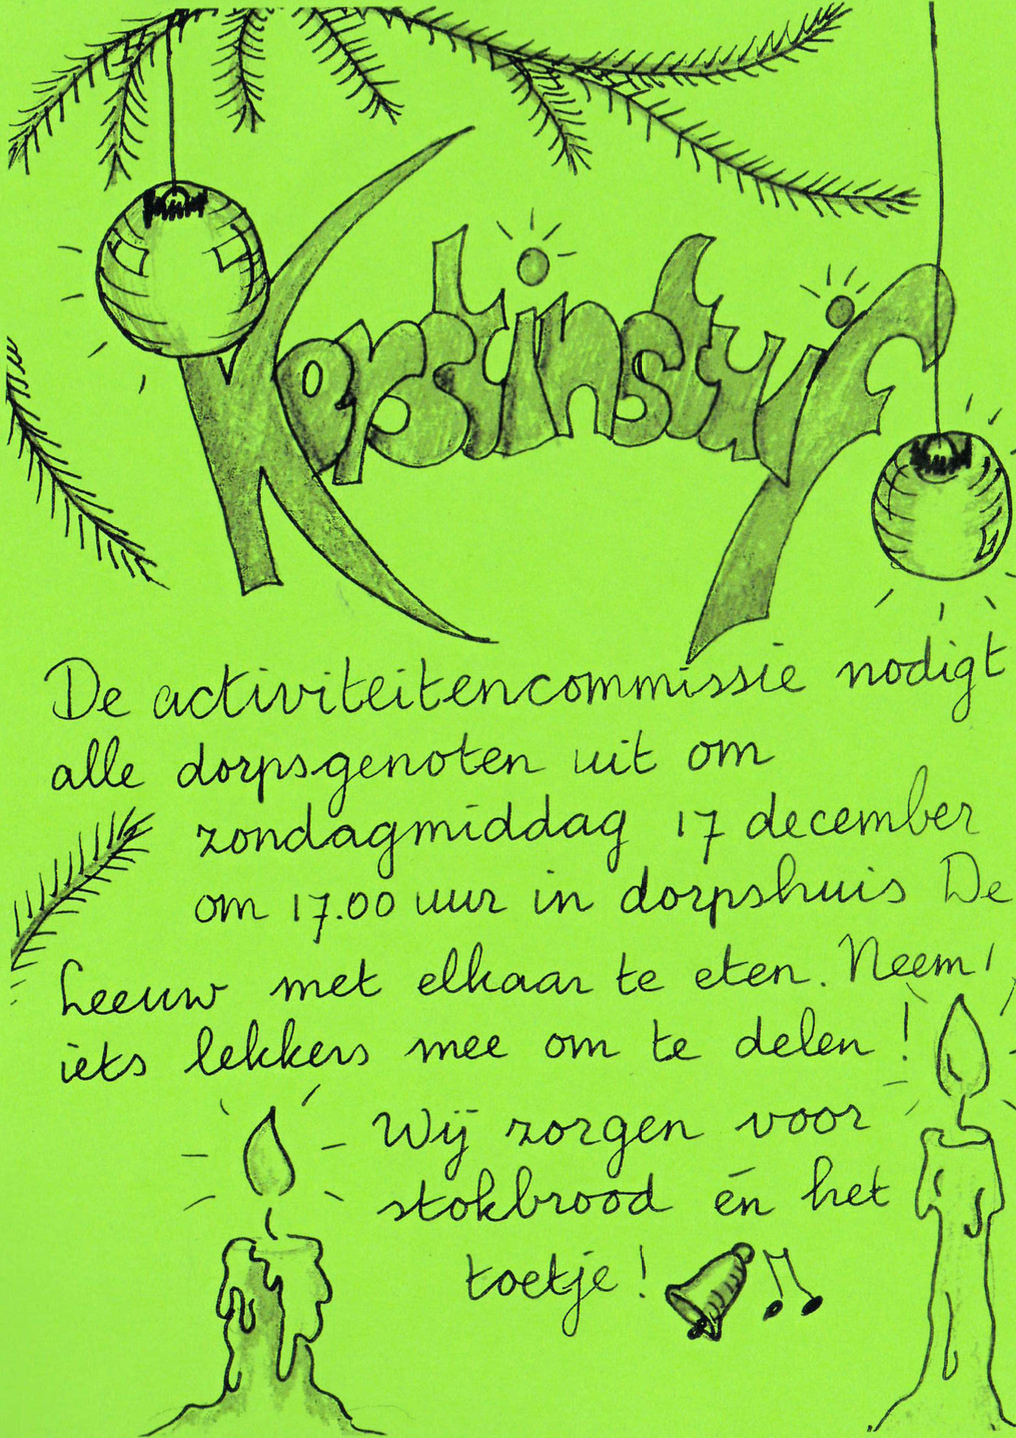 Kerstinstuif
De activiteitencommissie nodigt
alle dorpsgenoten uit om
zondagmiddag 17 december
om 17.00 uur in dorpshuis De
Leeuw met elkaar te eten. Neem
iets lekkers mee om te delen!
Wij zorgen voor
stokbrood én het
toetje!